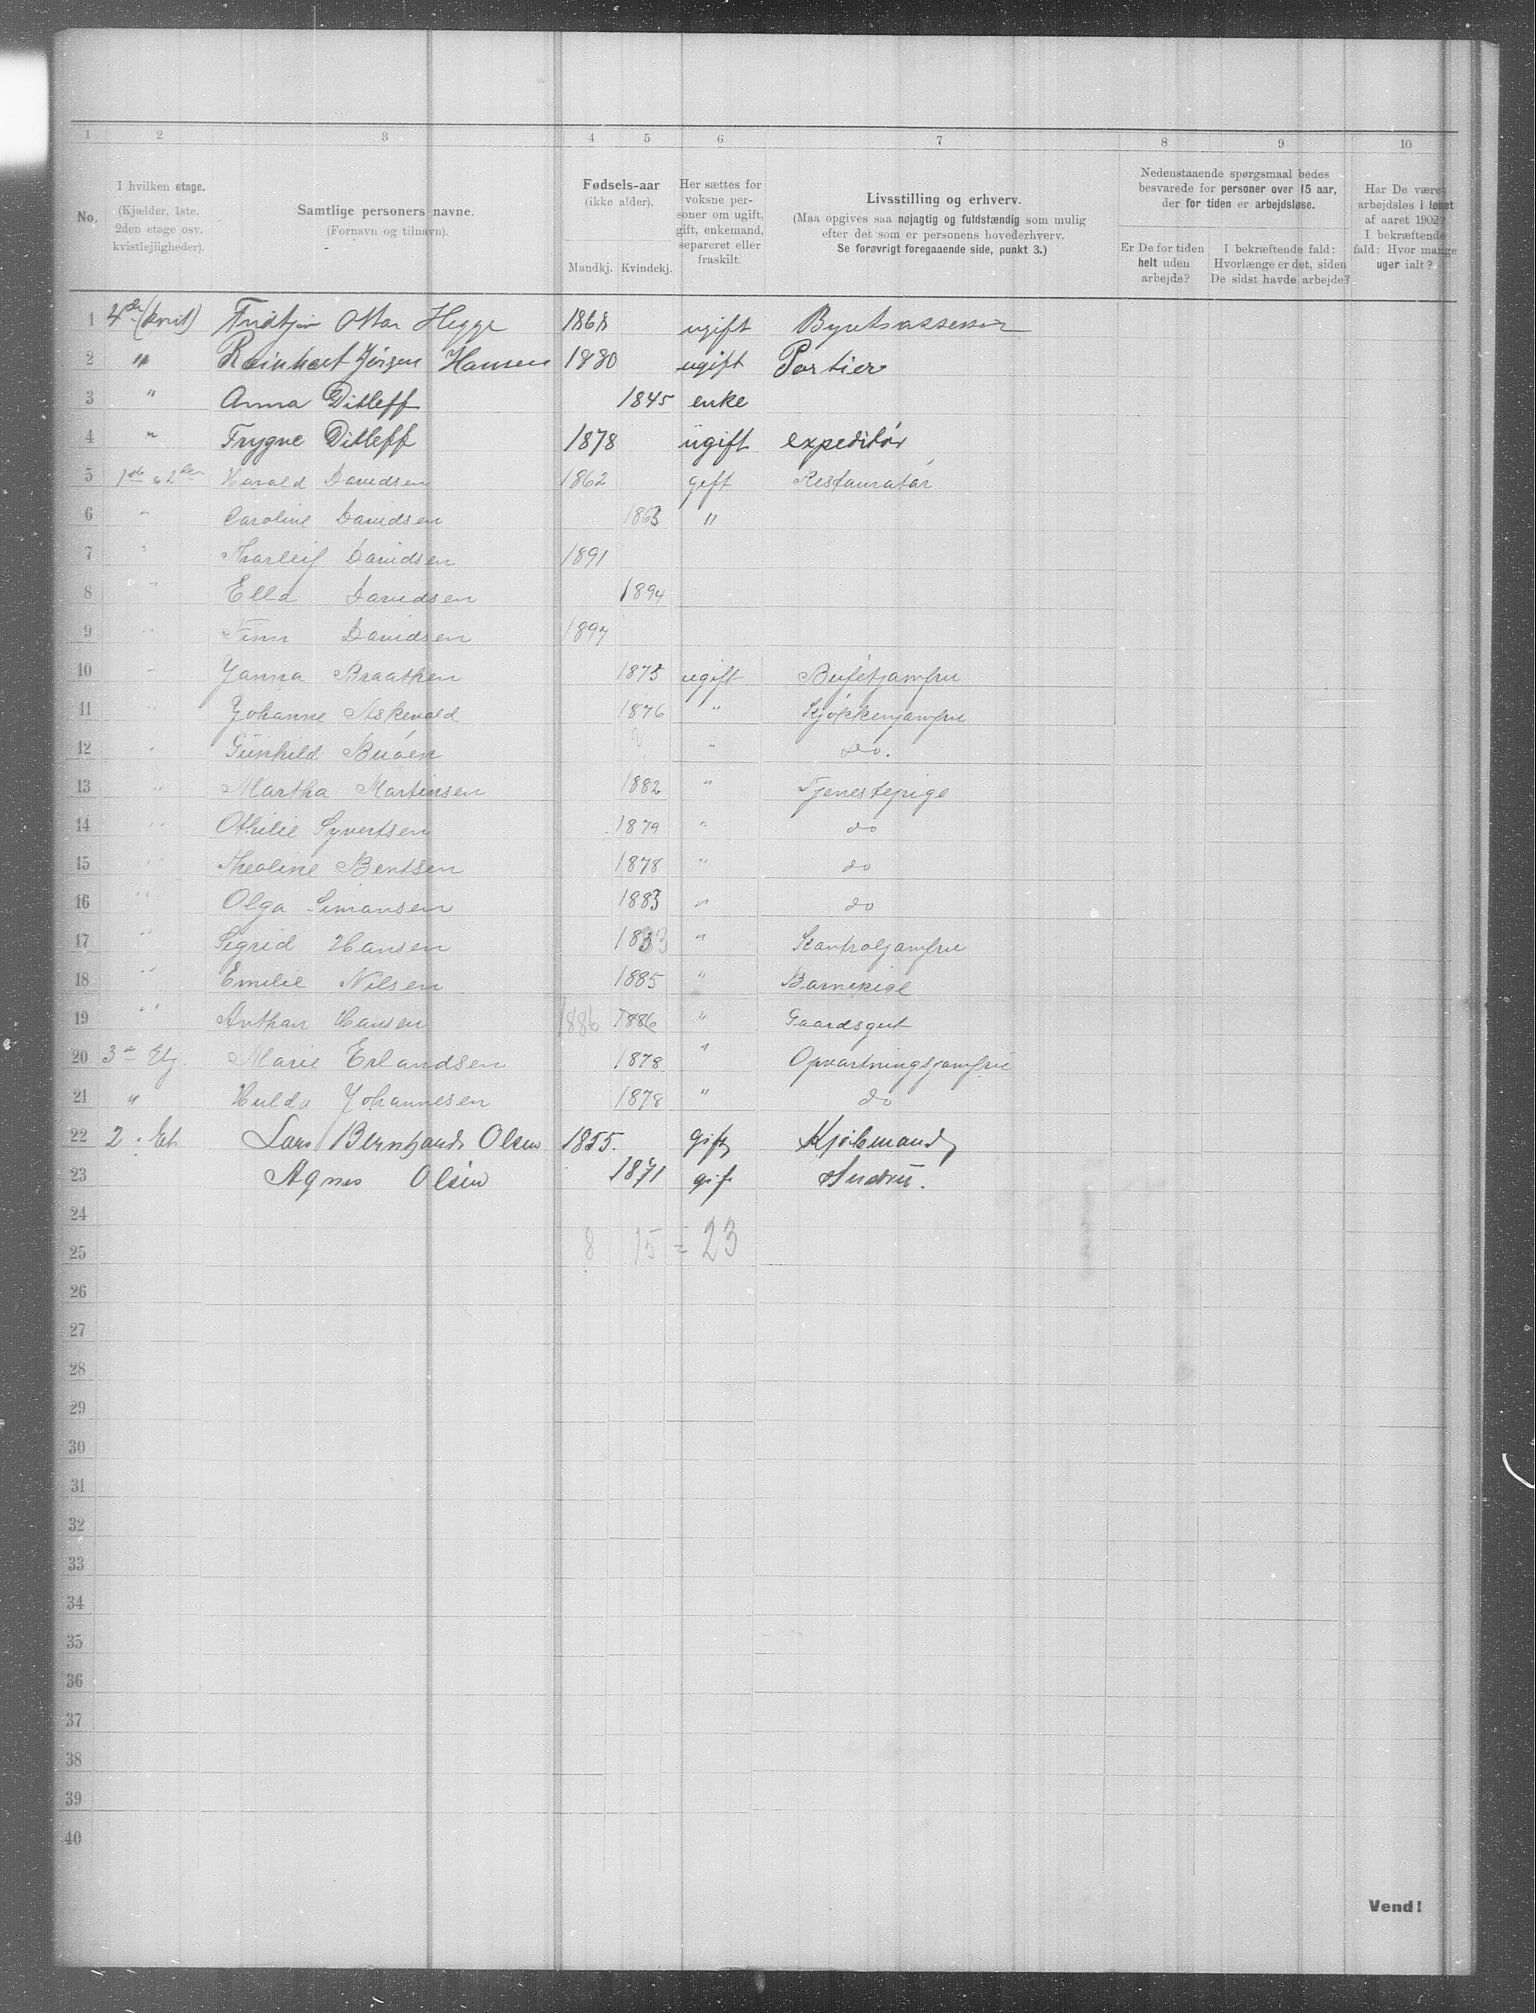 1 2 3 4 5 6 7 8 9 10
No. I hvilken etage. (Kjelder, 1ste, 2den etage osv. kvistlejligheder). Samtlige personers navne. (Fornavn og tilnavn). Fødsels-aar (ikke alder). Mandkj. Kvindekj. Her sættes for voksne personer om ugift, gift, enkemand, separeret eller fraskilt. Livsstilling og erhverv. (Maa opgives saa nøjagtig og fuldstændig som mulig efter det som er personens hovederhverv. Se forøvrigt foregaaende side, punkt 3.) Nedenstaaende spørgsmaal bedes besvarede for personer over 15 aar, der for tiden er arbejdsløse. Er De for tiden helt uden arbejde? I bekræftende fald: Hvorlænge er det, siden De sidst havde arbejde? Har De været arbejdsløs i løbet af aaret 1902? I bekræftende fald: Hvor mange uger ialt?
1 4de (kvist) Fridtjov Ottar Hegge 1868 ugift Byretsassessor
2 " Reinhart Jörgen Hansen 1880 ugift Portier
3 " Anna Ditleff 1845 enke
4 " Trygve Ditleff 1878 ugift expeditør
5 1ste & 2den Harald Davidsen 1862 gift Restauratør
6 " Caroline Davidsen 1863 "
7 " Thorleif Davidsen 1891
8 " Ella Davidsen 1894
9 " Finn Davidsen 1897
10 " Janna Braathen 1875 ugift Bufetjomfru
11 " Johanne Askevold 1876 " Kjøkkenjomfru
12 " Gunhild Buöen " do.
13 " Martha Martinsen 1882 " Tjenestepige
14 " Othilie Syvertsen 1879 " do
15 " Theoline Bentsen 1878 " do
16 " Olga Simonsen 1883 " do
17 " Sigrid Hansen 1883 " Kontroljomfru
18 " Emilie Nilsen 1885 " Barnepige
19 " Anthon Hansen 1886 1886 " Gaardsgut
20 3de Etg. Marie Erlandsen 1878 " Opvartningsjomfru
21 " Hulda Johannesen 1878 " do
22 2. Et. Lars Bernhard Olsen 1855. gift Kjöbmand
23 Agnes Olsen 1871 gift Hustru.
24
25 8 15 = 23
26
27
28
29
30
31
32
33
34
35
36
37
38
39
40
Vend!